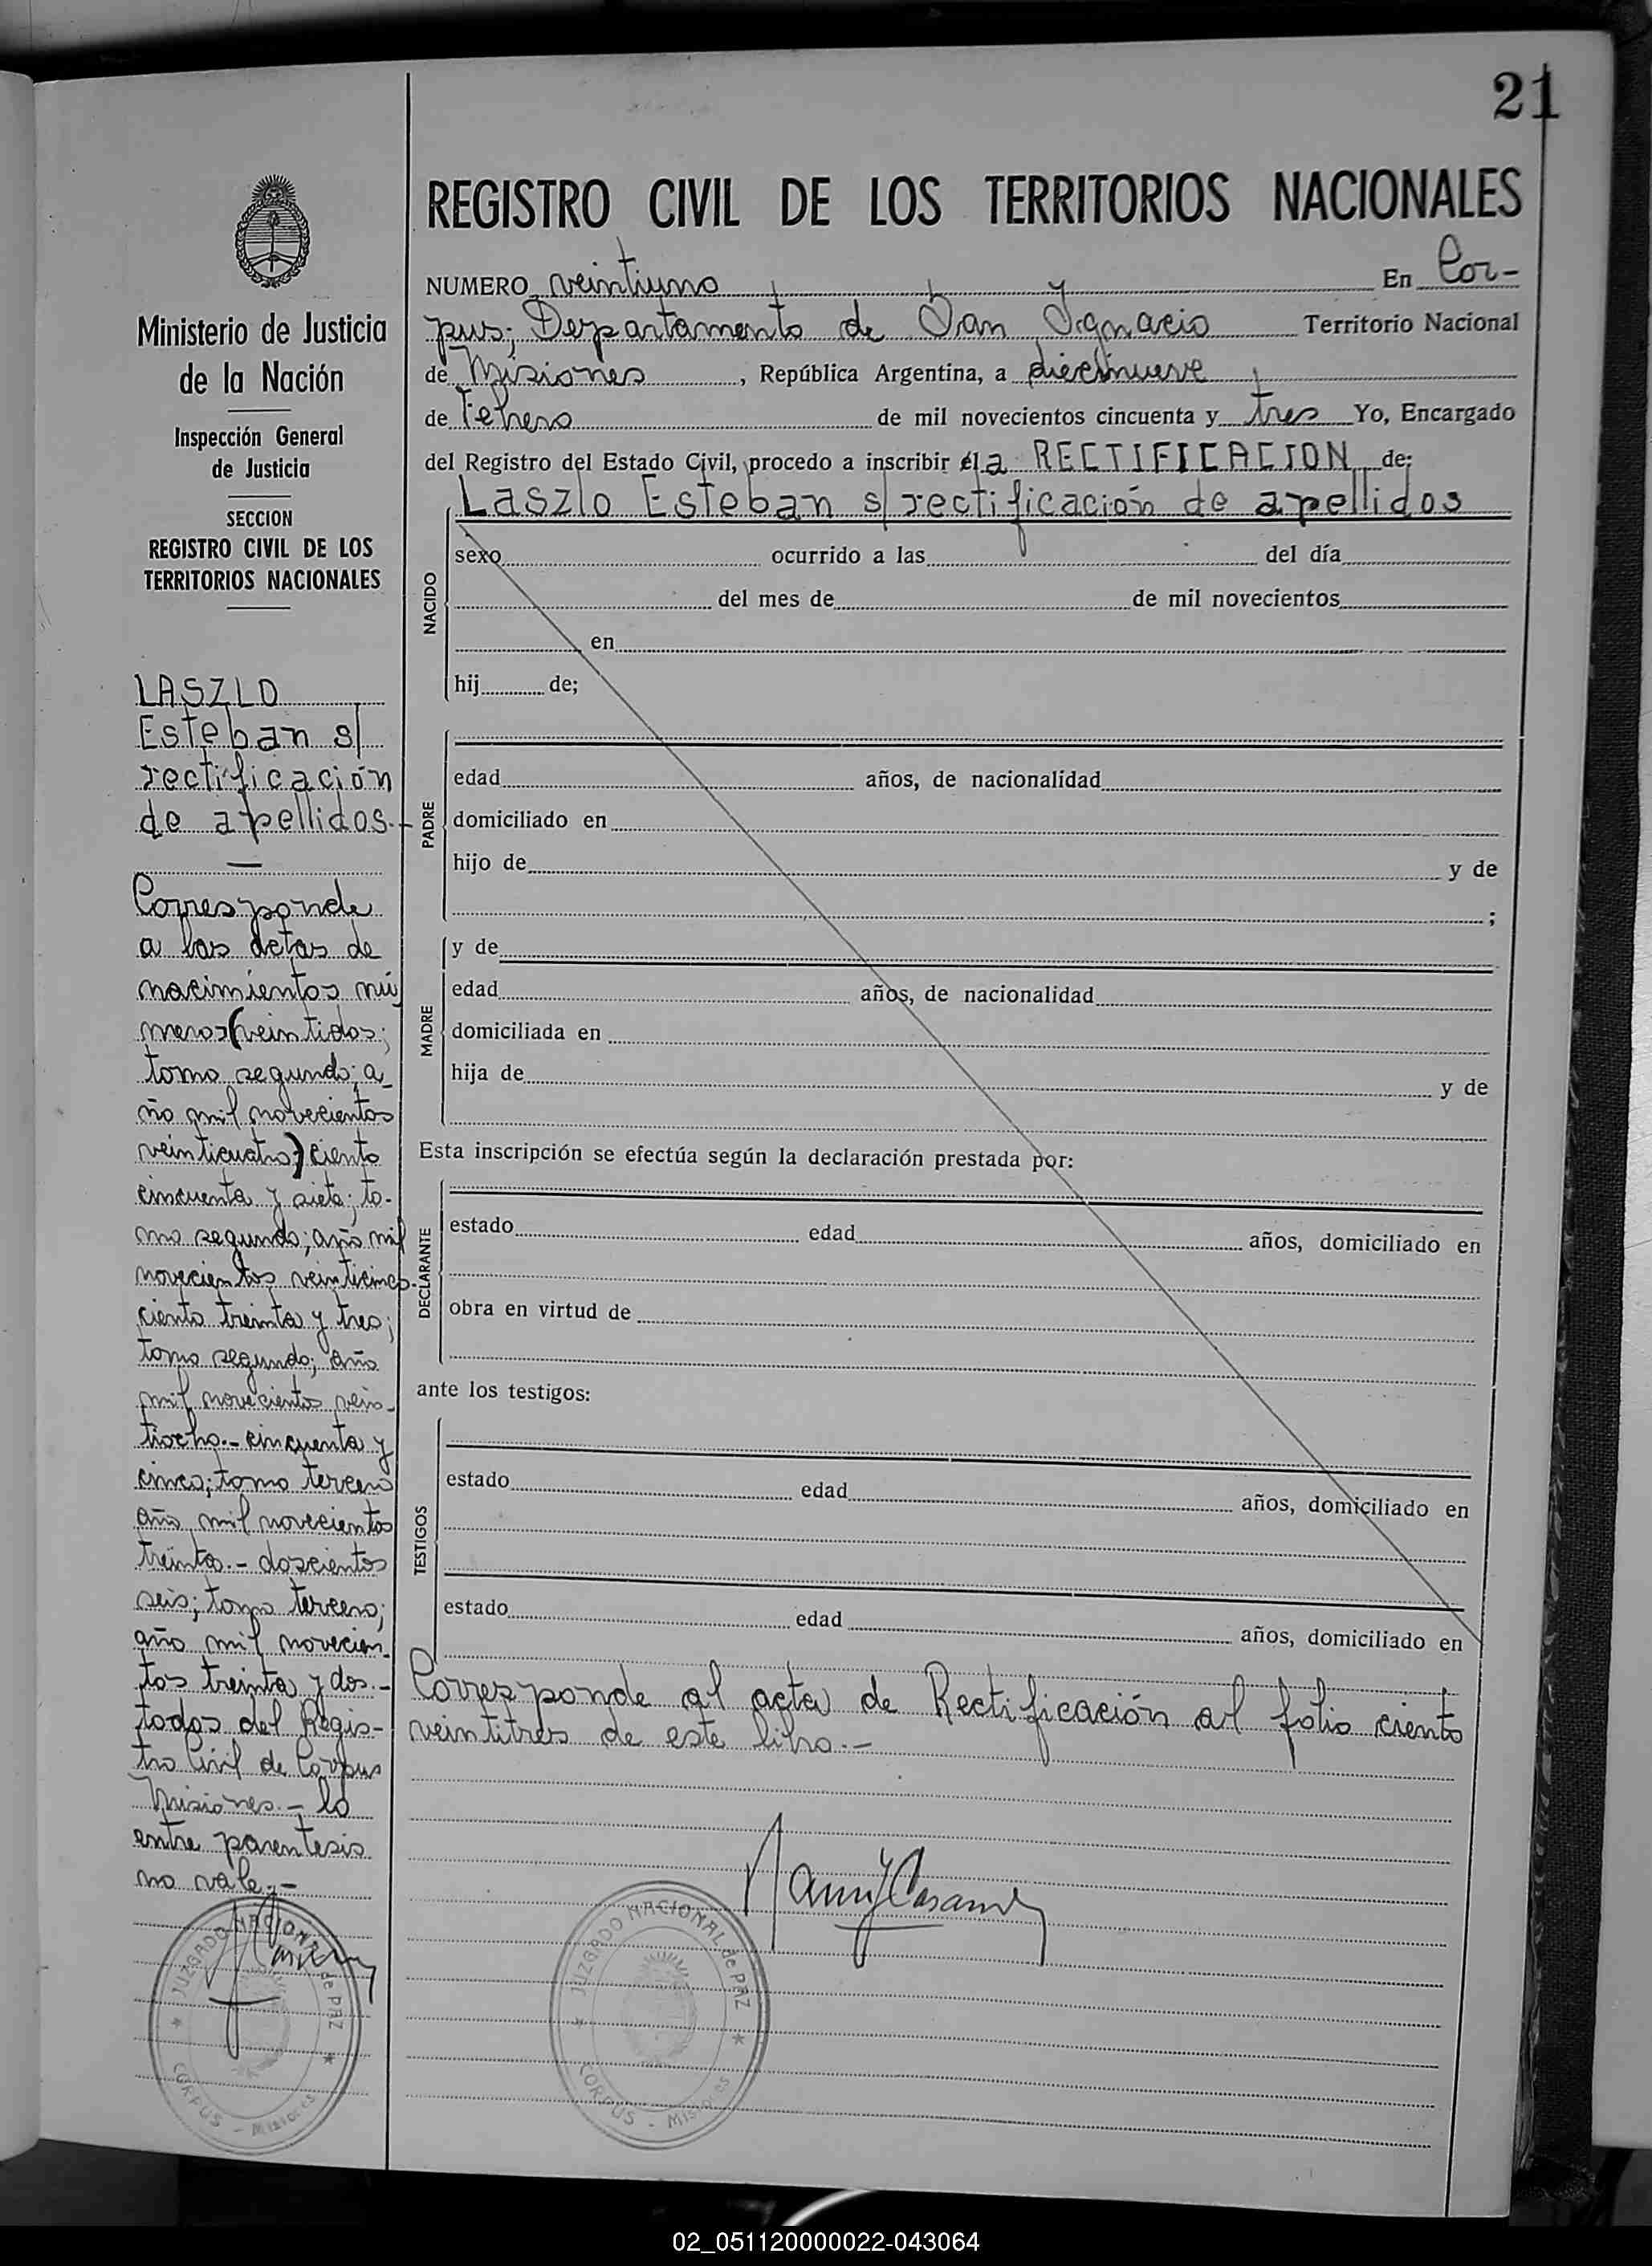 21
REGISTRO CIVIL DE LOS TERRITORIOS NACIONALES
NUMERO veintiuno En Cor-
pus; Departamento de San Ignacio Territorio Nacional
de Misiones, República Argentina, a diecinueve
de Febrero de mil novecientos cincuenta y tres Yo, Encargado
del Registro del Estado Civil, procedo a inscribir el a RECTIFICACION de;
Laszlo Esteban s/ rectificación de apellidos
NACIDO
sexo ocurrido a las del día
del mes de de mil novecientos
en
hij de;
PADRE
edad años, de nacionalidad
domiciliado en
hijo de y de
;
MADRE
y de
edad años, de nacionalidad
domiciliada en
hija de y de
Esta inscripción se efectúa según la declaración prestada por:
DECLARANTE
estado edad años, domiciliado en
obra en virtud de
ante los testigos:
TESTIGOS
estado edad años, domiciliado en
estado edad años, domiciliado en
Corresponde al acta de Rectificación al folio ciento
veintitres de este libro.-
JUZGADO NACIONAL de PAZ
CORPUS - Misiones
Ministerio de Justicia
de la Nación
Inspección General
de Justicia
SECCION
REGISTRO CIVIL DE LOS
TERRITORIOS NACIONALES
LASZLO
Esteban s/
rectificación
de apellidos.-
Corresponde
a las actas de
nacimientos nú
meros (veintidos;
tomo segundo; a-
ño mil novecientos
veinticuatro) ciento
cincuenta y siete; to-
mo segundo; año mil
novecientos veinticinco.-
ciento treinta y tres;
tomo segundo; año
mil novecientos vein-
tiocho.- cincuenta y
cinco; tomo tercero
año mil novecientos
treinta.- doscientos
seis; tomo tercero;
año mil novecien-
tos treinta y dos.-
todos del Regis-
tro Civil de Corpus
Misiones.- lo
entre parentesis
no vale.-
JUZGADO NACIONAL de PAZ
CORPUS - Misiones
02_051120000022-043064